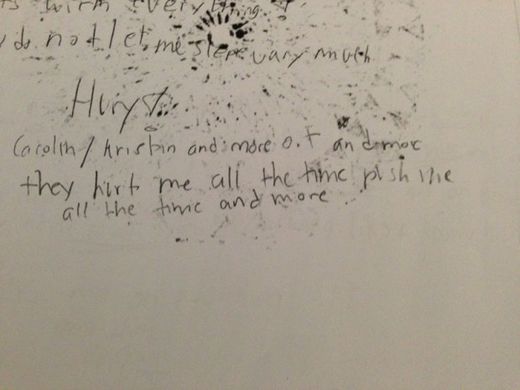 with every thing
do not let me sleep vary much
Hurys
Carolin/ kristin and more o.t and moe
they hirt me all the time pish me
all the time and more